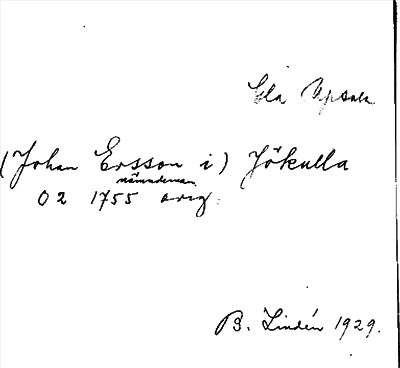 Gla Upsala
(Johan Ersson i) Jökulla
nämndeman
02 1755 orig.
B. Lindén 1929.